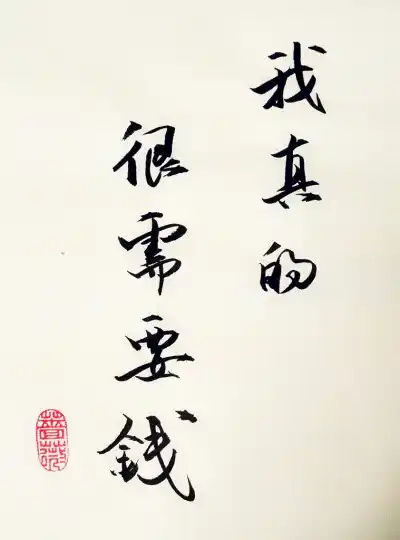 我真的
很需要錢